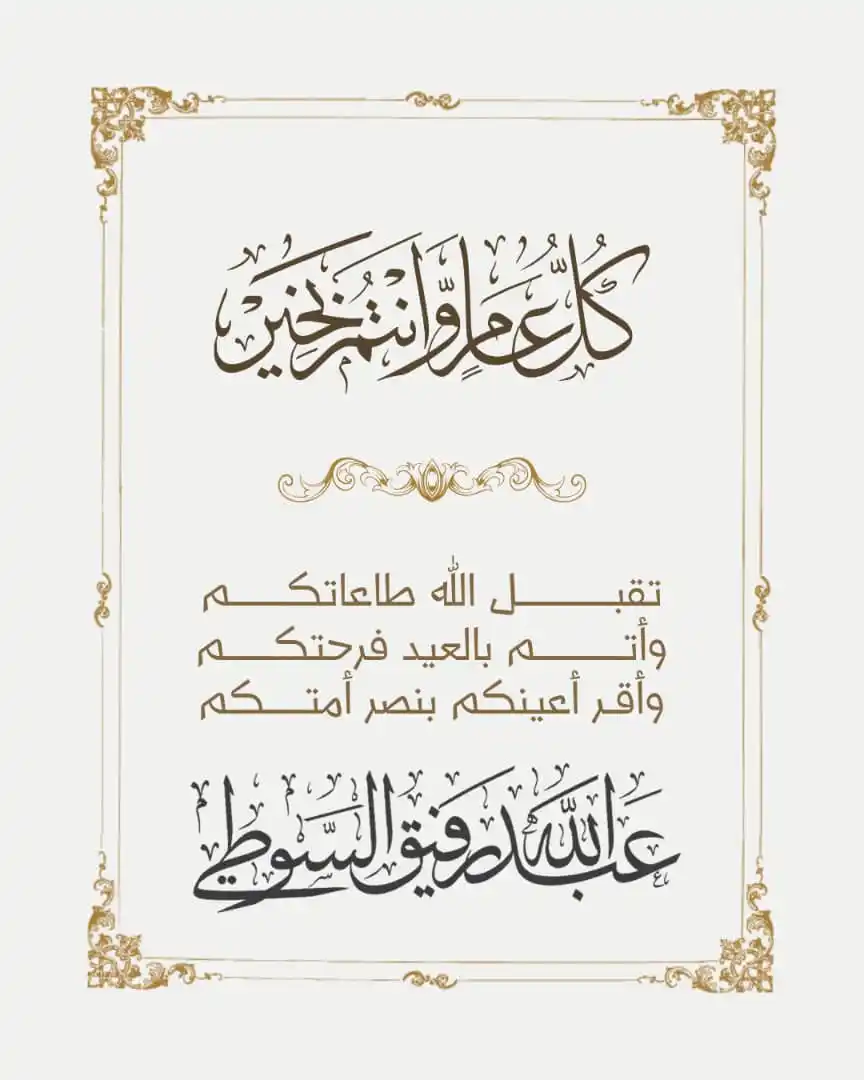 كُلُّ عَامٍ وَّانْتُمْ بِخَيْر
تقبل الله طاعاتكم
وأتم بالعيد فرحتكم
وأقر أعينكم بنصر أمتكم
عبدالله رفيق السوطي